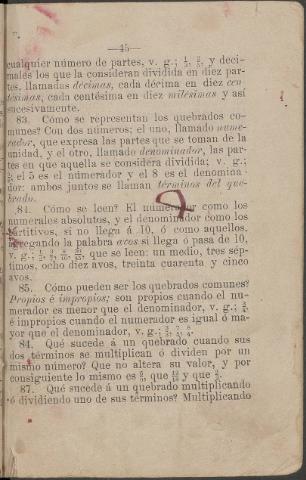 —45—
cualquier número de partes, v. g.;
y deci-
males los que la consideran dividida en diez par-
tes, llamadas décimas, cada décima en diez cen-
tésimas, cada centésima en diez milésimas y así
sucesivamente.
83. Cómo se representan los quebrados co-
munes? Con dos números; el uno, llamado nume-
rador, que expresa las partes que se toman de la
unidad, y el otro, llamado denominador, las par-
tes en que aquella se considera dividida; v. g.;
el 5 es el numerador y el 8 es el denomina-
dor: ambos juntos se llaman términos del que-
brado.
84. Cómo se leen? El numerador como los
numerales absolutos, y el denominador como los
partitivos, si no llega á 10, ó como aquellos,
agregando la palabra avos si llega ó pasa de 10,
v. g.;
que se leen: un medio, tres sép-
timos, ocho diez avos, treinta cuarenta y cinco
avos.
85. Cómo pueden ser los quebrados comunes?
Propios é impropios; son propios cuando el nu-
merador es menor que el denominador, v. g.;
é impropios cuando el numerador es igual ó ma-
yor que el denominador, v. g.;
84. Qué sucede á un quebrado cuando sus
dos términos se multiplican ó dividen por un
mismo número? Que no altera su valor, y por
consiguiente lo mismo es
que
y que
87. Qué sucede á un quebrado multiplicando
ó dividiendo uno de sus términos? Multiplicando